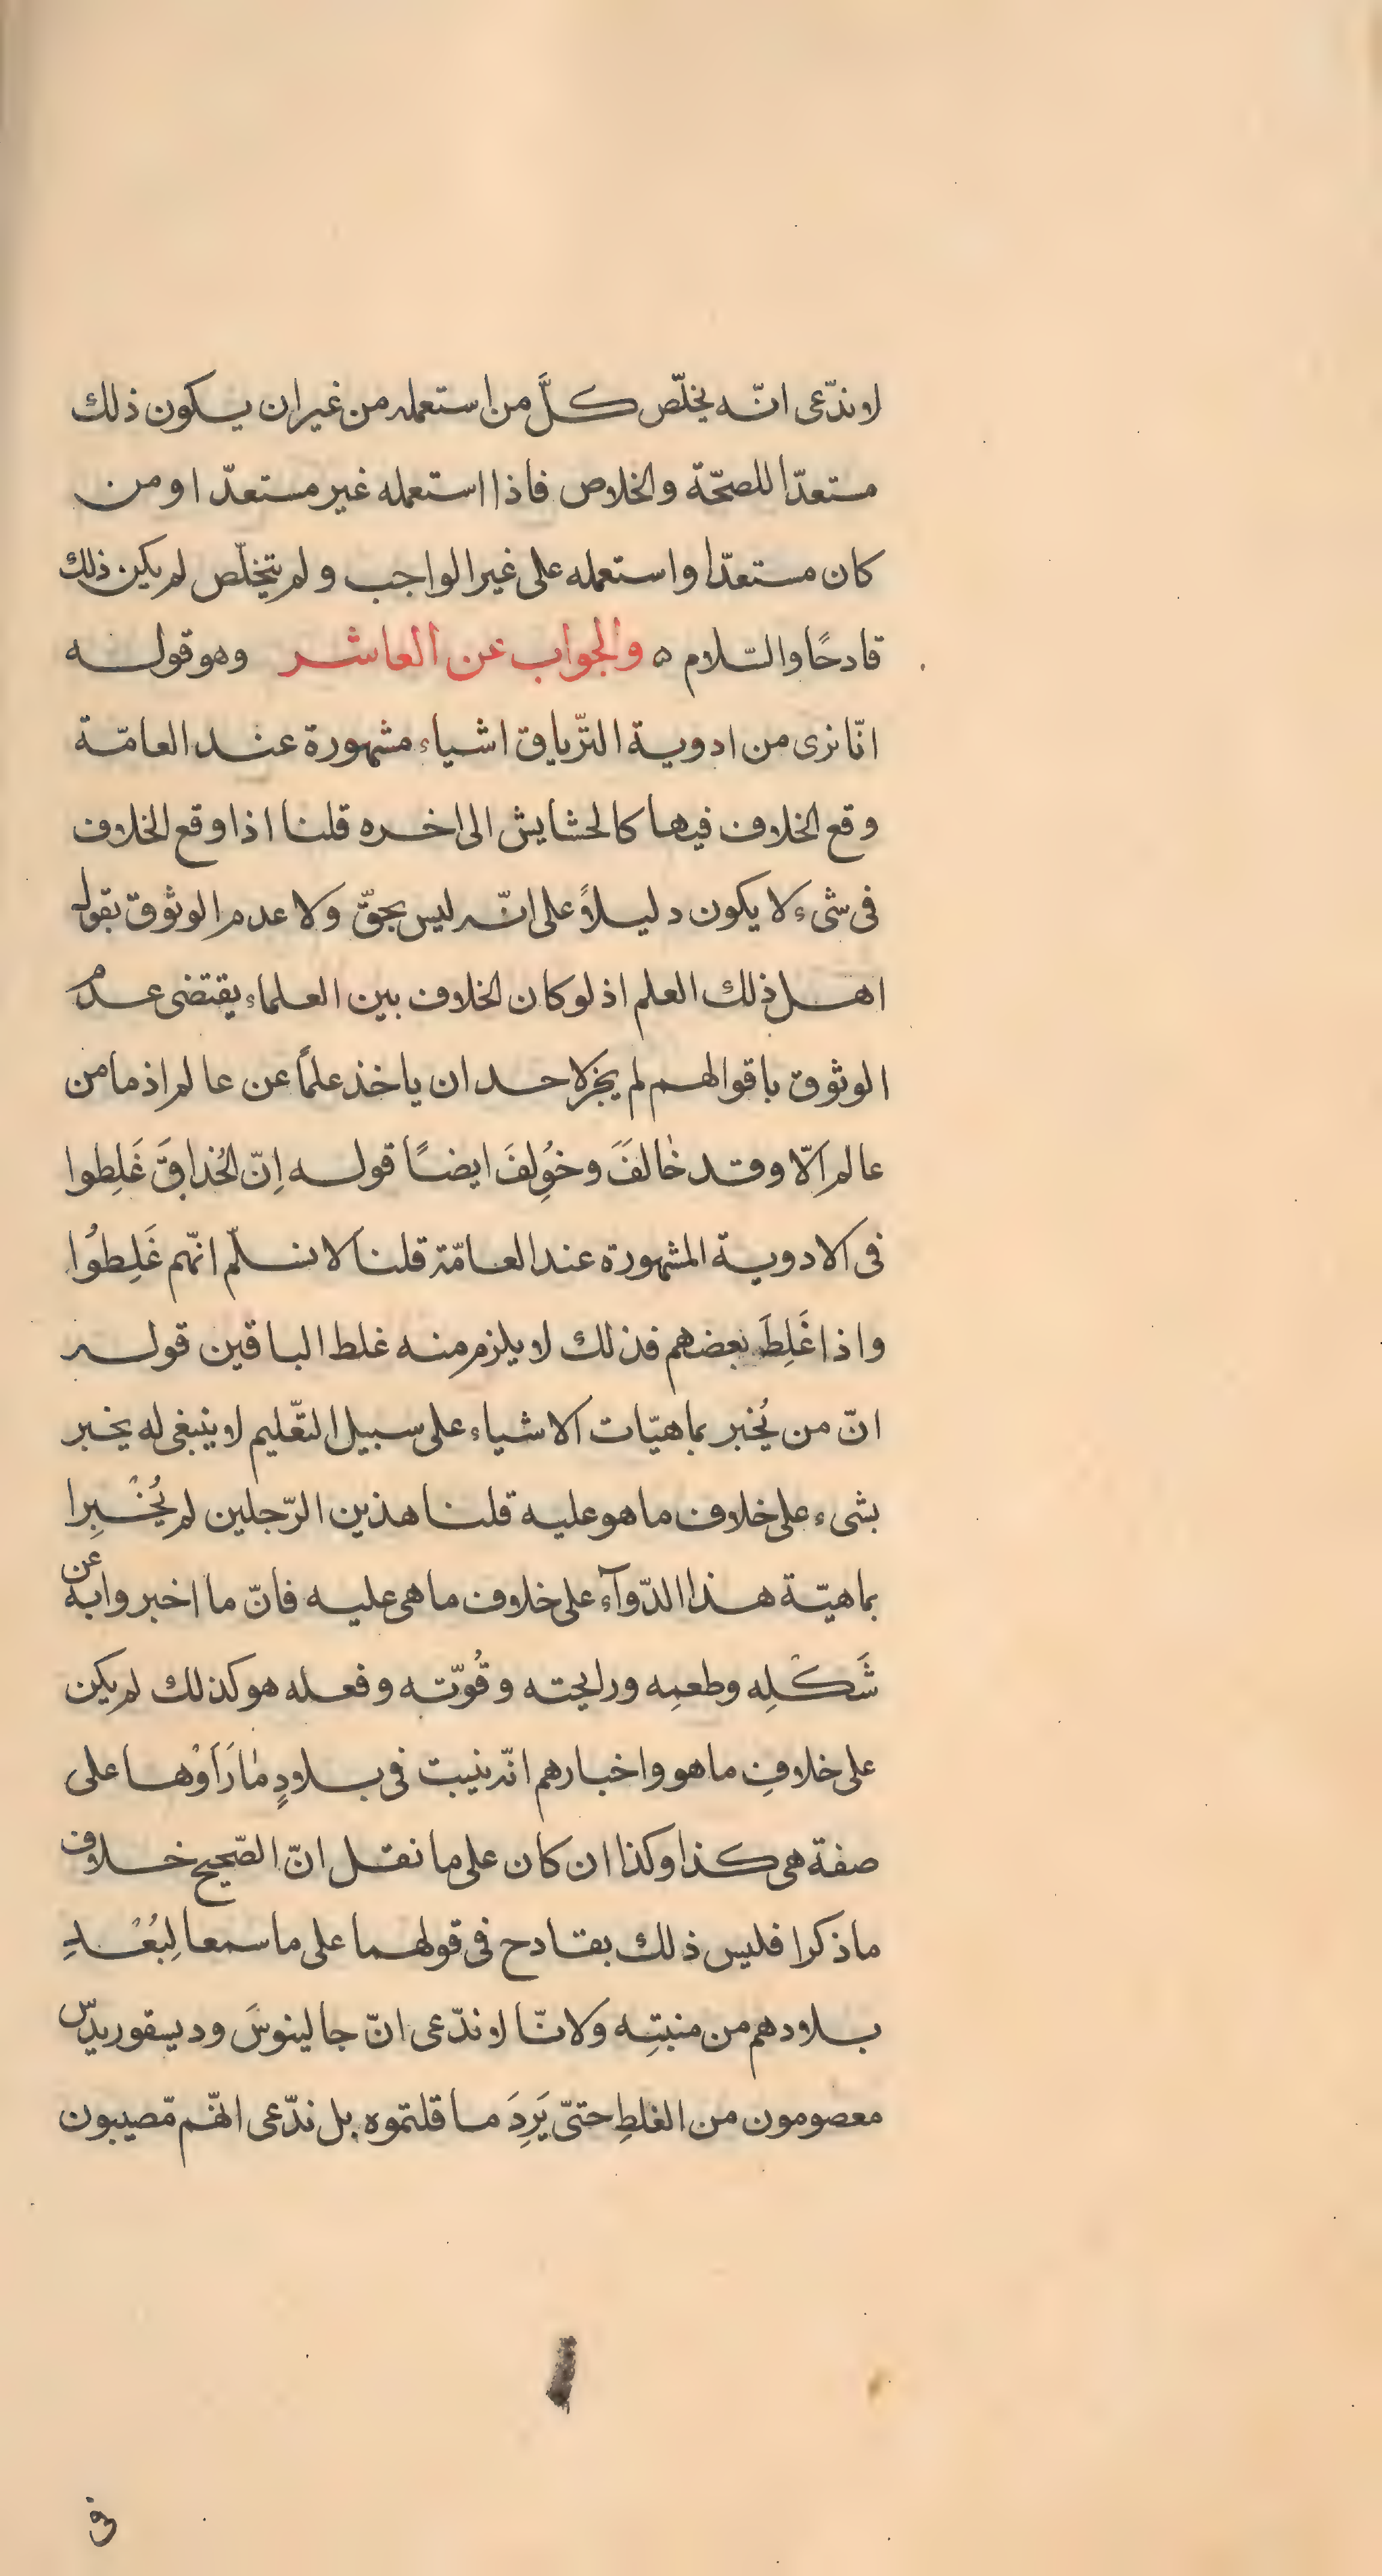 لا ندّعى انّه يخلّص كلَّ من استعمله من غير ان يكون ذلك
مستعدّا للصحّة والخلاص فاذا استعمله غير مستعدّ او من
كان مستعدّا واستعمله على غير الواجب ولم يتخلّص لم يكن ذلك
قادحًا والسّلام ه والجواب عن العاشر وهو قوله
انّا نرى من ادوية الترّياق اشياء مشهورة عند العامّة
وقع الخلاف فيها كالحشايش الى اخره قلنا اذا وقع الخلاف
فى شىء لا يكون دليلاً على انّه ليس بحقّ ولا عدم الوثوق بقول
اهل ذلك العلم اذ لو كان الخلاف بين العلماء يقتضى عدم
الوثوق باقوالهم لم يجز لاحد ان ياخذ علمًا عن عالم اذ ما من
عالم الّا وقد خالفَ وخُولِفَ ايضًا قوله اِنّ الحُذاقَ غَلِطوا
فى الادوية المشهورة عند العامّة قلنا لا نسلّم انّهم غَلِطُوا
واذا غَلِطَ بعضهم فذلك لا يلزم منه غلط الباقين قوله
انّ من يُخبر بماهيّات الاشياء على سبيل التعّليم لا ينبغى له يخبر
بشىء على خلاف ما هو عليه قلنا هذين الرّجلين لم يُخْبِرا
بماهيّة هذا الدّوآء على خلاف ما هى عليه فانّ ما اخبروا به عن
شَكْلِه وطعمِه ورايحته وقُوّته وفعله هو كذلك لم يكن
على خلافِ ما هو واخبارهم انّه ينبت فى بلادٍ مَا رَاَوْها على
صفة هى كذا وكذا ان كان على ما نقل انّ الصّحيح خلاف
ما ذكرا فليس ذلك بقادح فى قولهما على ما سمعا لِبُعْدِ
بلادهم من منبتِه ولانّا لا ندّعى انّ جالينوسَ وديسقوريدّس
معصومون من الغلطِ حتىّ يَرِدَ ما قلتموه بل ندّعى انّهم مّصيبون
فى